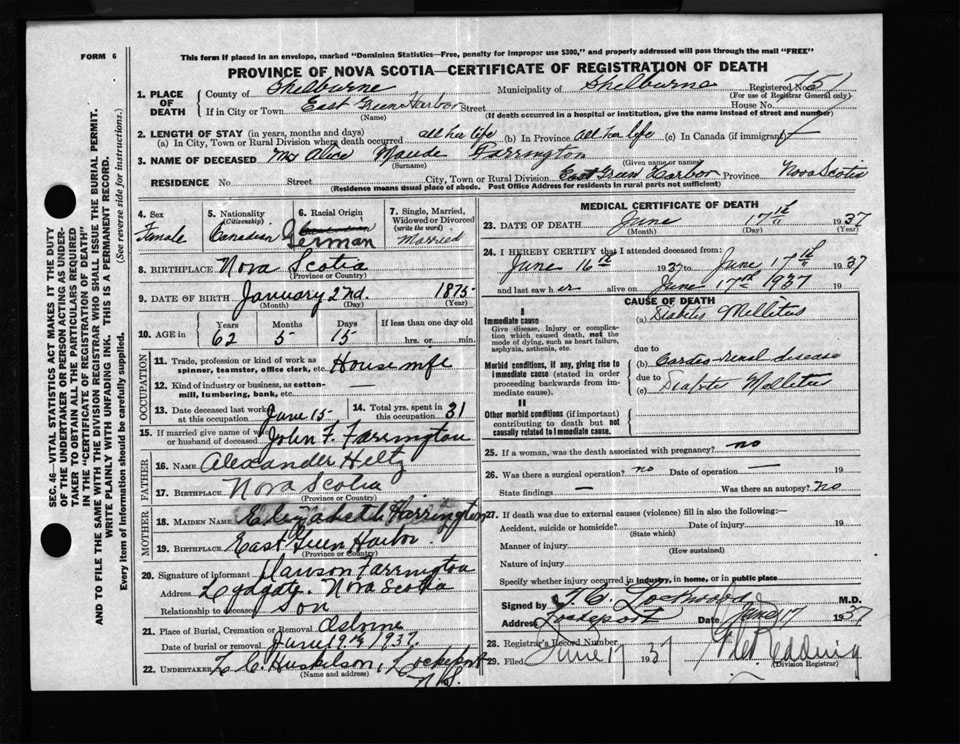 FORM 6
This form if placed in an envelope, marked "Dominion Statistics—Free, penalty for improper use $300," and properly addressed will pass through the mail "FREE"
PROVINCE OF NOVA SCOTIA—CERTIFICATE OF REGISTRATION OF DEATH
1. PLACE OF DEATH
County of Shelburne Municipality of Shelburne Registered No. 751
(For use of Registrar General only)
If in City or Town East Green Harbor Street House No.
(Name) (If death occurred in a hospital or institution, give the name instead of street and number)
2. LENGTH OF STAY (in years, months and days)
(a) In City, Town or Rural Division where death occurred all her life (b) In Province all her life (c) In Canada (if immigrant)
3. NAME OF DECEASED Mrs Alice Maude Farrington
(Surname) (Given name or names)
RESIDENCE No. Street City, Town or Rural Division East Green Harbor Province Nova Scotia
(Residence means usual place of abode. Post Office Address for residents in rural parts not sufficient)
4. Sex Female
5. Nationality (Citizenship) Canadian
6. Racial Origin German
7. Single, Married, Widowed or Divorced (write the word) Married
8. BIRTHPLACE Nova Scotia
(Province or Country)
9. DATE OF BIRTH January 2nd. 1875
(Month) (Day) (Year)
10. AGE in Years Months Days If less than one day old
62 5 15 hrs. or min.
OCCUPATION
11. Trade, profession or kind of work as spinner, teamster, office clerk, etc. Housewife
12. Kind of industry or business, as cotton-mill, lumbering, bank, etc. —
13. Date deceased last worked at this occupation June 15- 14. Total yrs. spent in this occupation 31
15. If married give name of wife or husband of deceased John F. Farrington
FATHER
16. NAME Alexander Heltz
17. BIRTHPLACE Nova Scotia
(Province or Country)
MOTHER
18. MAIDEN NAME Elizabeth Harrington
19. BIRTHPLACE East Green Harbor
(Province or Country)
20. Signature of informant Dawson Farrington
Address Nova Scotia
Relationship to deceased Son
21. Place of Burial, Cremation or Removal Osborne
Date of burial or removal June 19th 1937
22. UNDERTAKER L. C. Huskilson, Lockeport N.S.
(Name and address)
MEDICAL CERTIFICATE OF DEATH
23. DATE OF DEATH June 17th 1937
(Month) (Day) (Year)
24. I HEREBY CERTIFY that I attended deceased from:
June 16th 1937 to June 17th 1937
and last saw her alive on June 17th 1937 19
CAUSE OF DEATH
I
Immediate cause
Give disease, injury or complication which caused death, not the mode of dying, such as heart failure, asphyxia, asthenia, etc.
(a) Diabetes Mellitus
due to
Morbid conditions, if any, giving rise to immediate cause (stated in order proceeding backwards from immediate cause).
(b) Cardio-renal disease
due to
(c) Diabetes Mellitus
II
Other morbid conditions (if important) contributing to death but not causally related to immediate cause.
25. If a woman, was the death associated with pregnancy? no
26. Was there a surgical operation? no Date of operation — 19
State findings — Was there an autopsy? No
27. If death was due to external causes (violence) fill in also the following:—
Accident, suicide or homicide? Date of injury 19
(State which)
Manner of injury
(How sustained)
Nature of injury
Specify whether injury occurred in industry, in home, or in public place
Signed by Lockwood M.D.
Address Lockeport Date June 17 1937
28. Registrar's Record Number
29. Filed June 17 1937 Redding
(Division Registrar)
SEC. 46—VITAL STATISTICS ACT MAKES IT THE DUTY
OF THE UNDERTAKER OR PERSON ACTING AS UNDER-
TAKER TO OBTAIN ALL THE PARTICULARS REQUIRED
IN THE "CERTIFICATE OF REGISTRATION OF DEATH"
AND TO FILE THE SAME WITH THE DIVISION REGISTRAR WHO SHALL ISSUE THE BURIAL PERMIT.
WRITE PLAINLY WITH UNFADING INK. THIS IS A PERMANENT RECORD.
Every item of information should be carefully supplied. (See reverse side for instructions.)